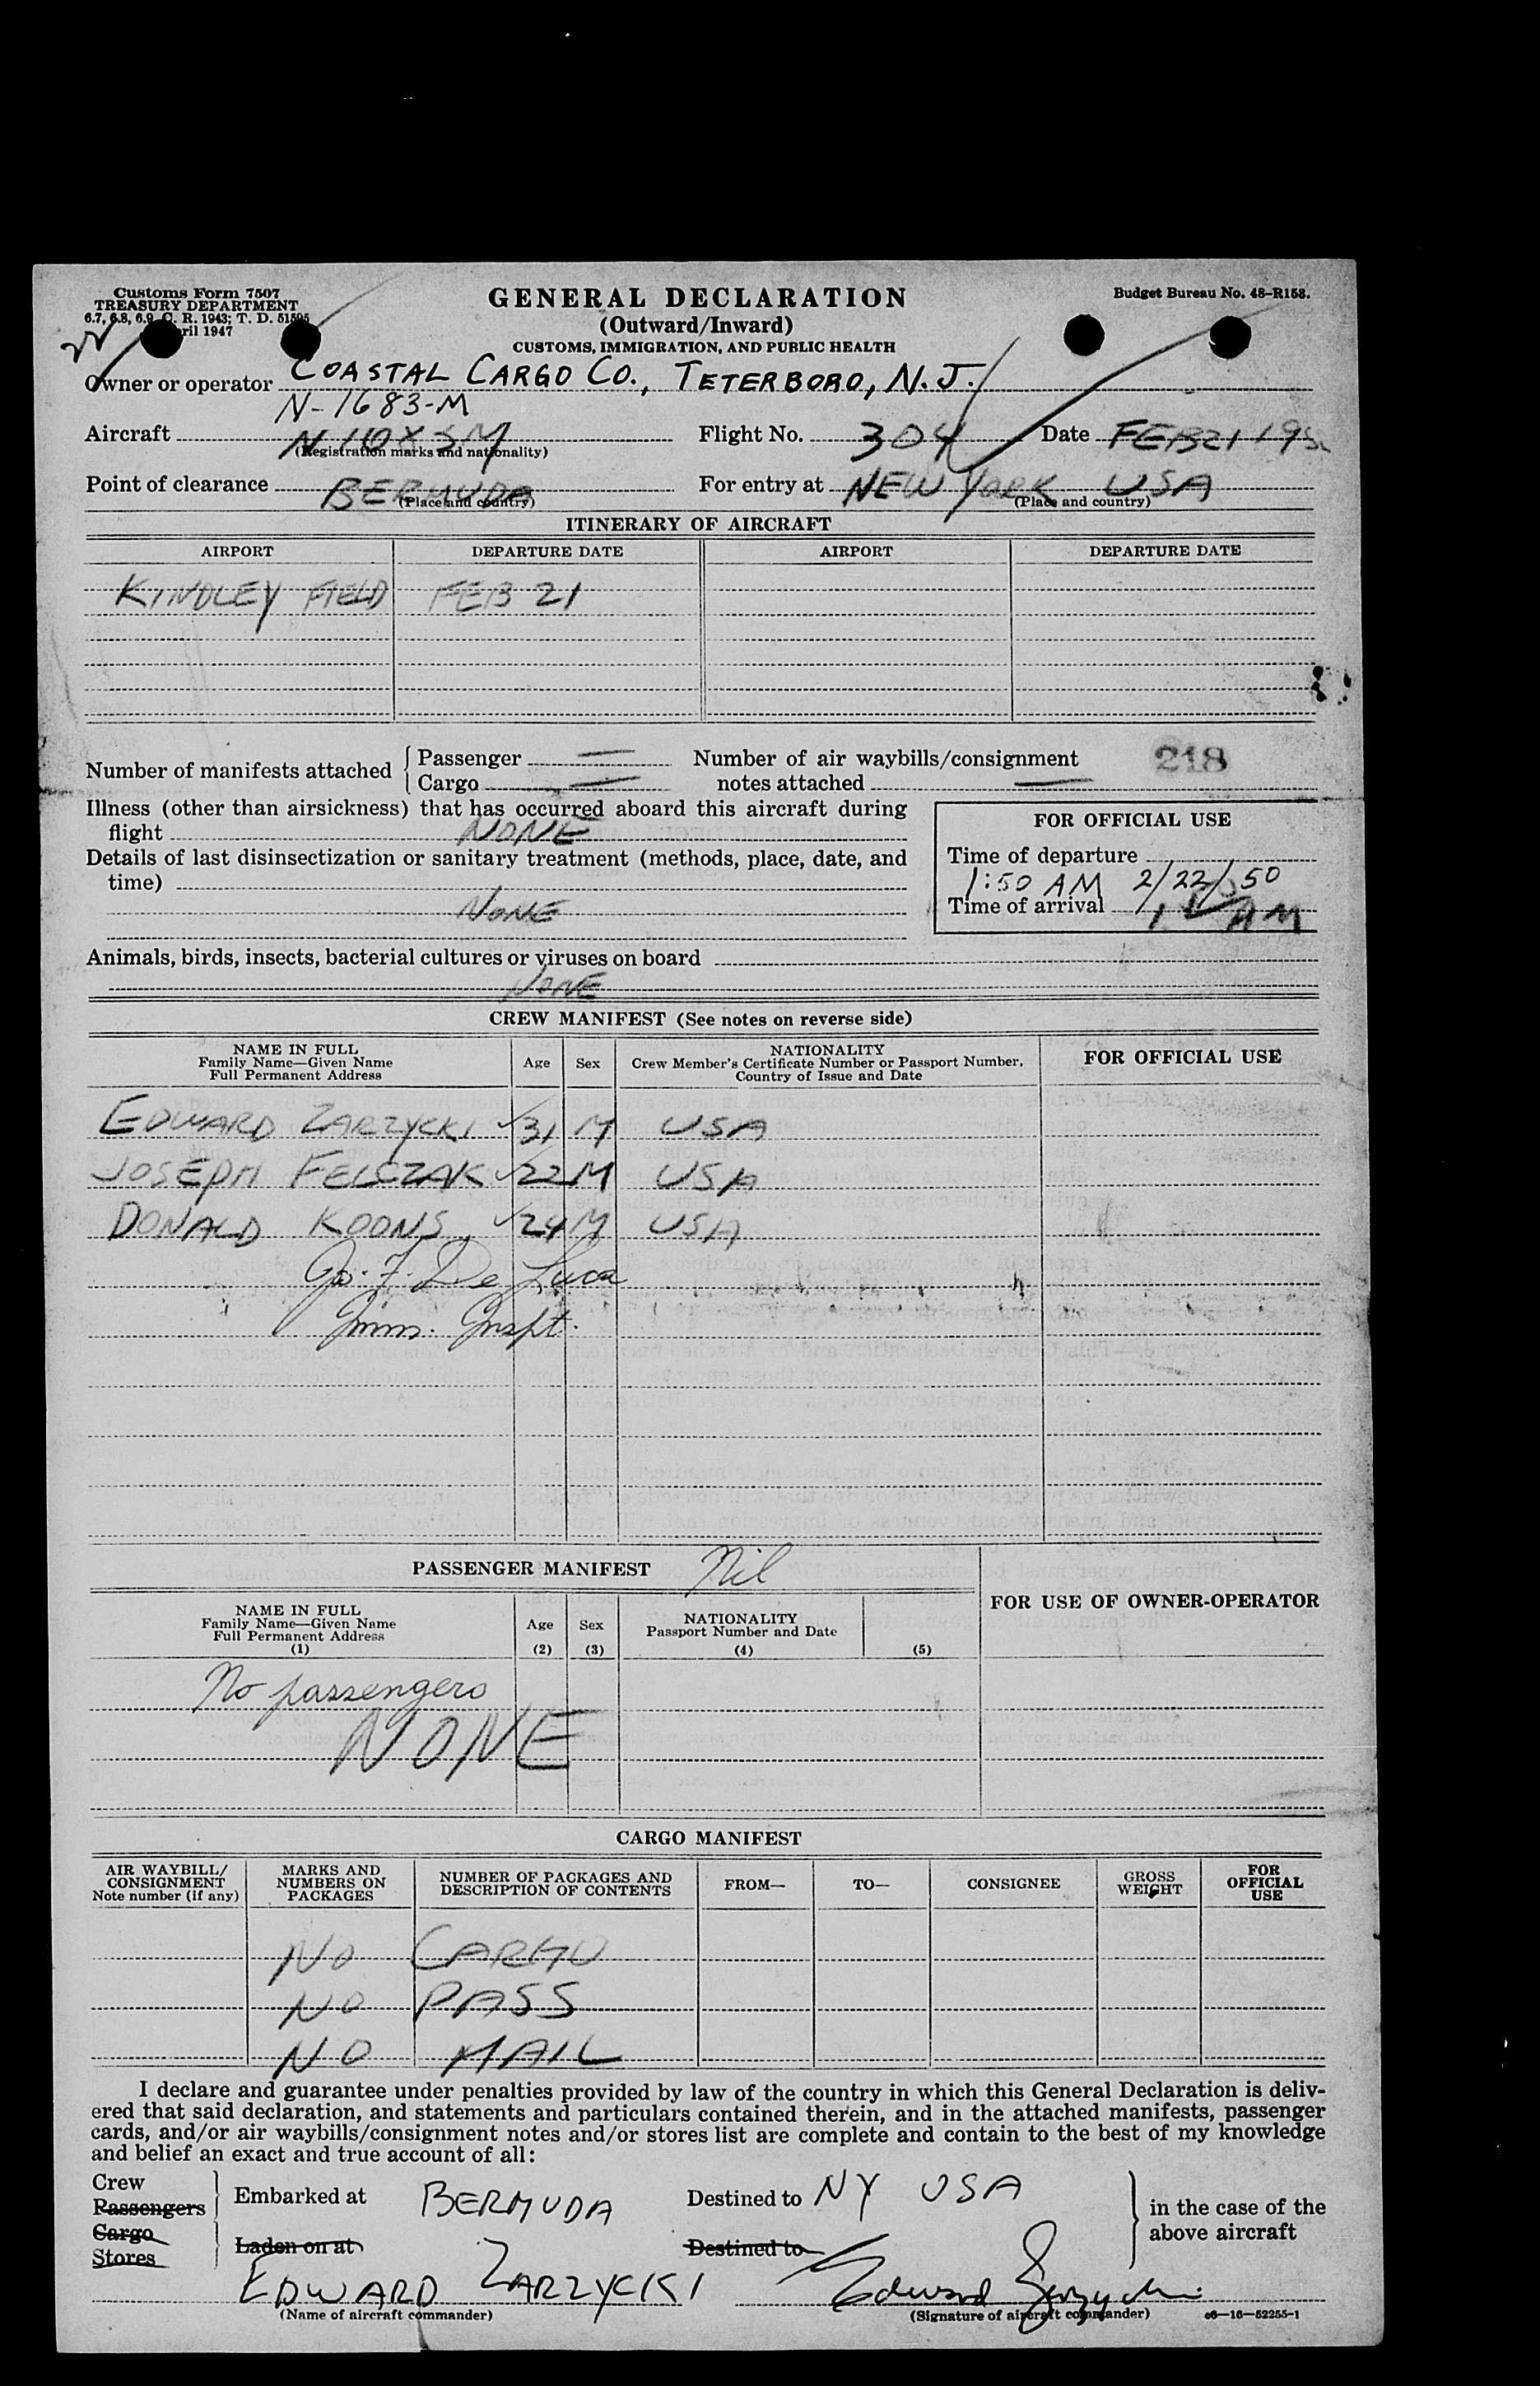 Customs Form 7507
TREASURY DEPARTMENT
6.7, 6.8, 6.9, C. R. 1943; T. D. 51595
April 1947
GENERAL DECLARATION
(Outward/Inward)
CUSTOMS, IMMIGRATION, AND PUBLIC HEALTH
Budget Bureau No. 48-R158.
Owner or operator COASTAL CARGO CO., TETERBORO, N.J.
N-1683-M
Aircraft
(Registration marks and nationality)
Flight No. 304 Date FEB 21 195
Point of clearance BERMUDA
(Place and country)
For entry at NEW YORK USA
(Place and country)
ITINERARY OF AIRCRAFT
AIRPORT DEPARTURE DATE AIRPORT DEPARTURE DATE
KINDLEY FIELD FEB 21
Number of manifests attached { Passenger —
Cargo —
Number of air waybills/consignment
notes attached —
218
Illness (other than airsickness) that has occurred aboard this aircraft during
flight NONE
Details of last disinsectization or sanitary treatment (methods, place, date, and
time)
NONE
FOR OFFICIAL USE
Time of departure
1:50 AM 2/22/50
Time of arrival AM
Animals, birds, insects, bacterial cultures or viruses on board
NONE
CREW MANIFEST (See notes on reverse side)
NAME IN FULL
Family Name—Given Name
Full Permanent Address
Age
Sex
NATIONALITY
Crew Member's Certificate Number or Passport Number,
Country of Issue and Date
FOR OFFICIAL USE
EDWARD ZARZYCKI 31 M USA
JOSEPH FELCZAK 22 M USA
DONALD KOONS 24 M USA
Jos. F. De Luca
Imm. Inspt.
PASSENGER MANIFEST Nil
NAME IN FULL
Family Name—Given Name
Full Permanent Address
(1)
Age
(2)
Sex
(3)
NATIONALITY
Passport Number and Date
(4)
(5)
FOR USE OF OWNER-OPERATOR
No passengers
NONE
CARGO MANIFEST
AIR WAYBILL/
CONSIGNMENT
Note number (if any)
MARKS AND
NUMBERS ON
PACKAGES
NUMBER OF PACKAGES AND
DESCRIPTION OF CONTENTS
FROM—
TO—
CONSIGNEE
GROSS
WEIGHT
FOR
OFFICIAL
USE
NO CARGO
NO PASS
NO MAIL
I declare and guarantee under penalties provided by law of the country in which this General Declaration is deliv-
ered that said declaration, and statements and particulars contained therein, and in the attached manifests, passenger
cards, and/or air waybills/consignment notes and/or stores list are complete and contain to the best of my knowledge
and belief an exact and true account of all:
Crew
Passengers
Embarked at BERMUDA Destined to NY USA
Cargo
Stores
Laden on at Destined to
in the case of the
above aircraft
EDWARD ZARZYCKI Edward Zarzycki
(Name of aircraft commander)
(Signature of aircraft commander)
c6—16—52255-1